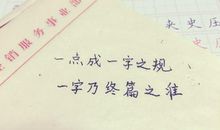 营销服务事业部
夹史压
一点成一字之规
一字乃终篇之准